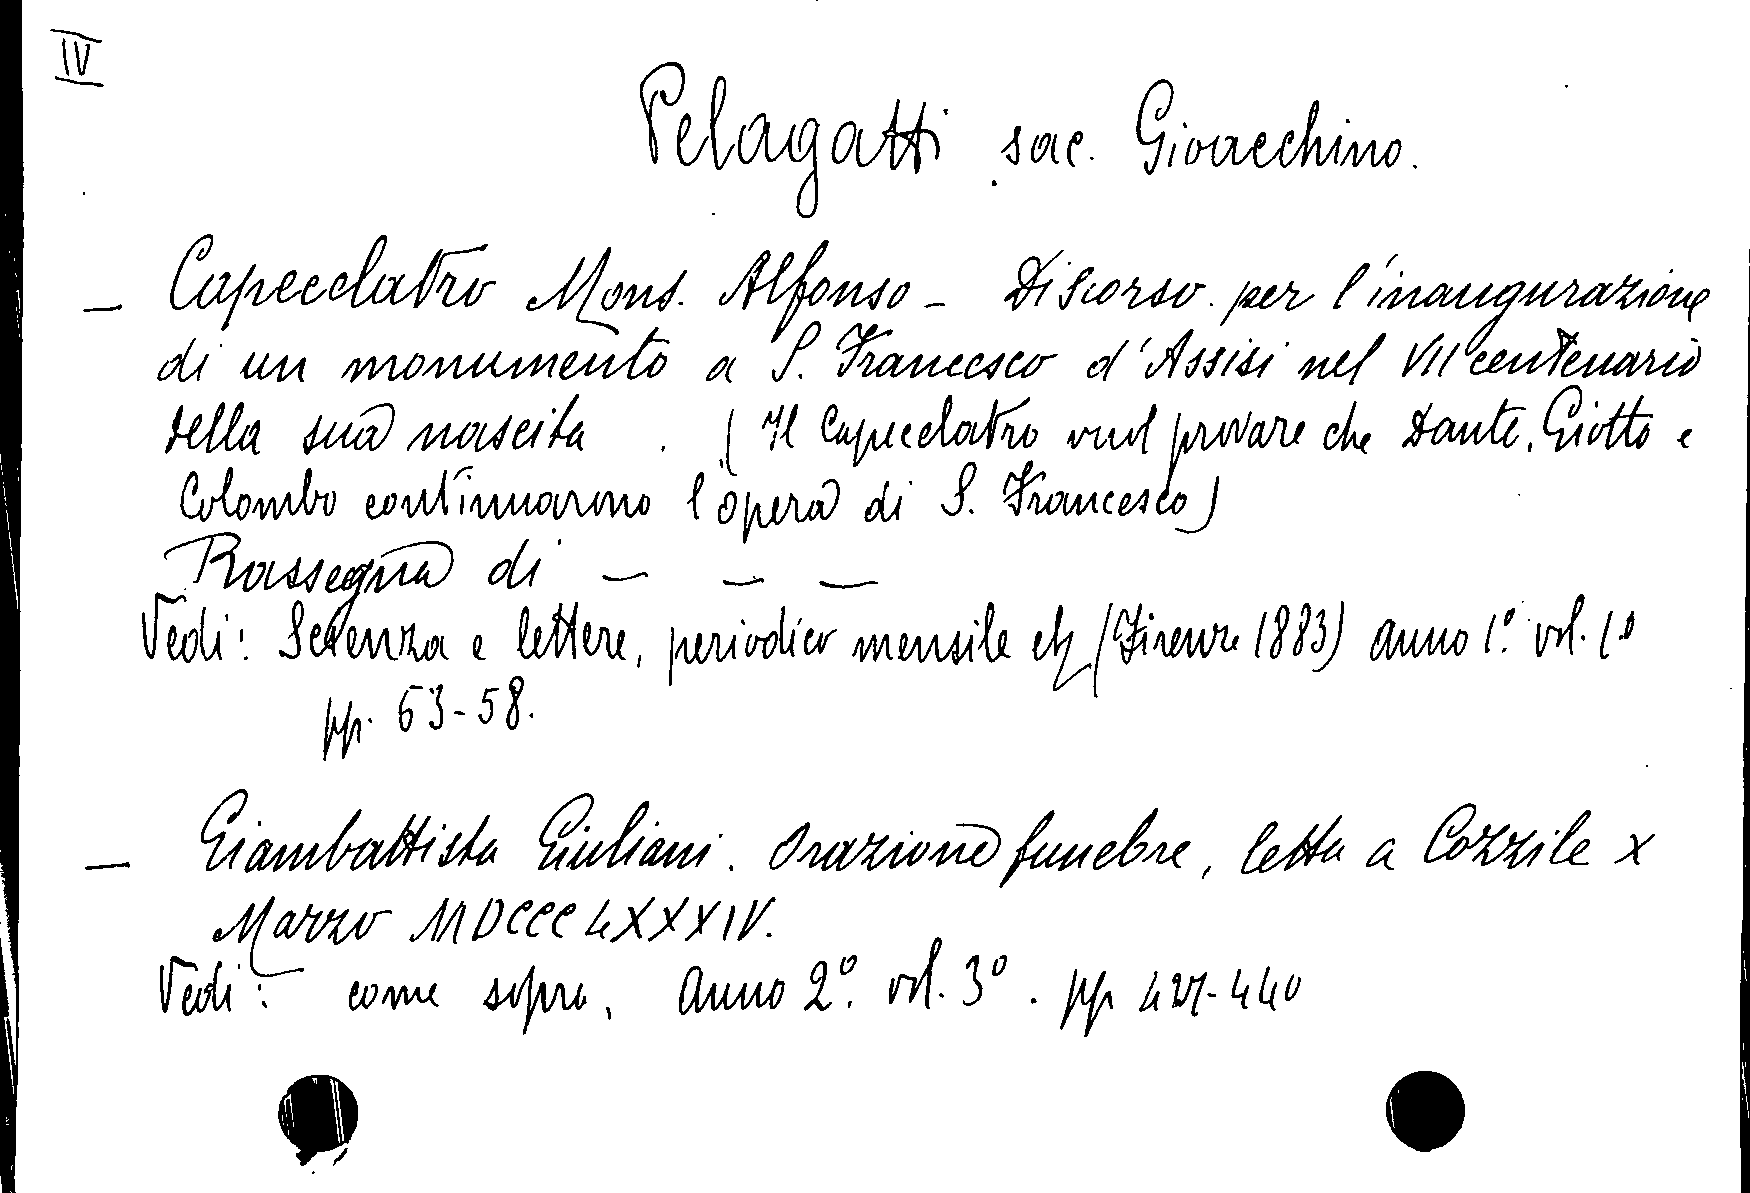 IV
Pelagatti sac. Giovacchino.
— Capecelatro Mons. Alfonso – Discorso per l'inaugurazione
di un monumento a S. Francesco d'Assisi nel VII centenario
della sua nascita . (Il Capecelatro vuol provare che Dante, Giotto e
Colombo continuarono l'opera di S. Francesco)
Rassegna di — — —
Vedi: Scienza e lettere, periodico mensile etc (Firenze 1883) anno 1.° vol. 1°
pp. 53-58.
— Giambattista Giuliani. Orazione funebre, letta a Cozzile X
Marzo MDCCCLXXXIV.
Vedi: come sopra, anno 2.° vol. 3°. pp 427-440